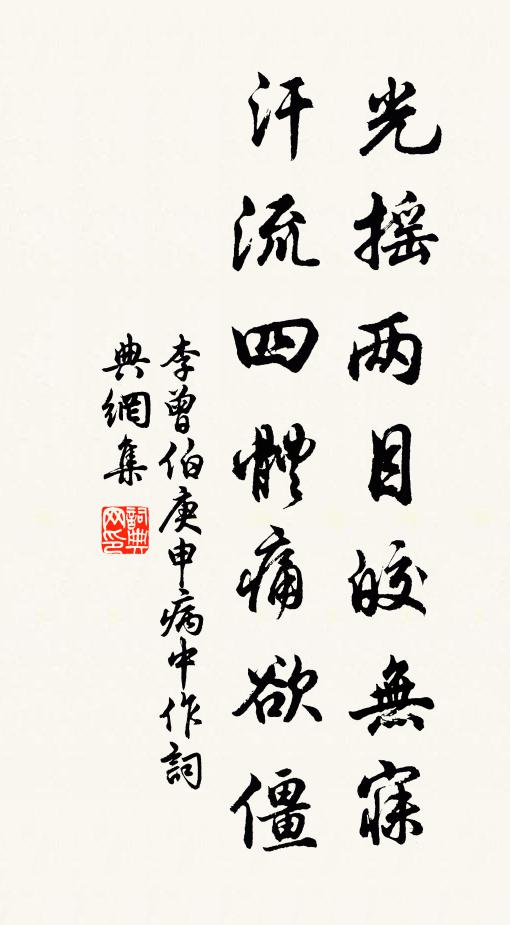 光摇两目皎無寐
汗流四體痛欲僵
李曾伯庚申病中作詞
典網集
詞典
网印